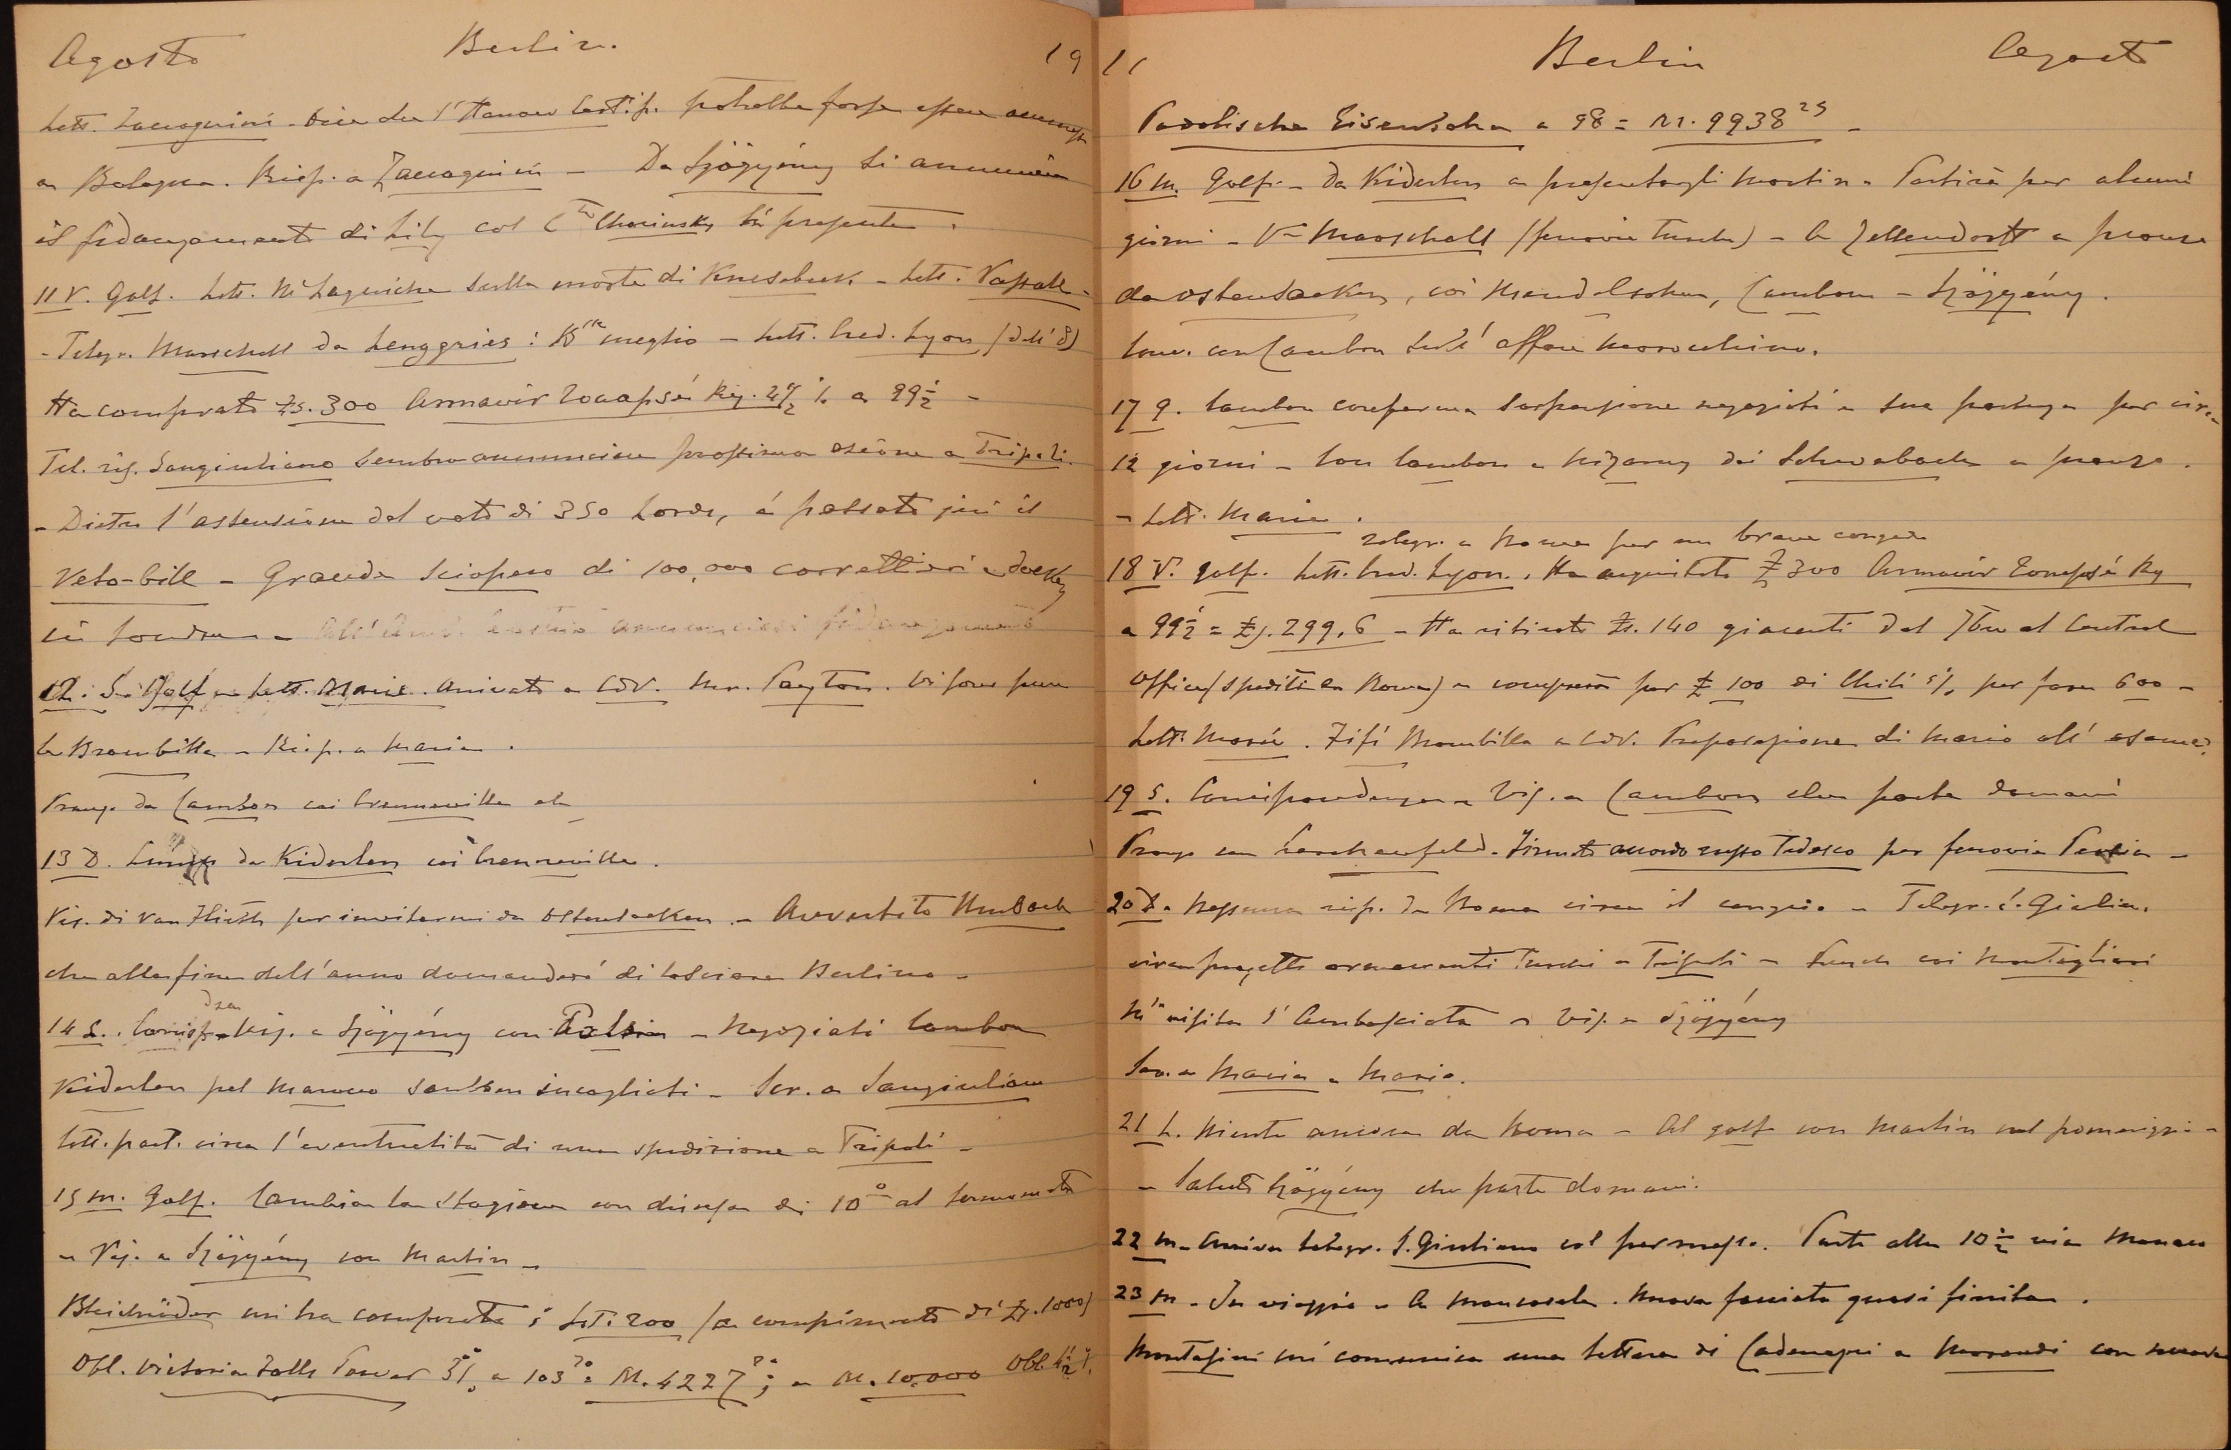 Agosto Berlin. 19
Lett. Zaccagnini. Dice che l'Hanau Cert. ip. potrebbe forse essere ammesso
a Bologna. Risp. a Zaccagnini – Da Szögyény si annunzia
il fidanzamento di Lily col Cte Chorinsky lì presente.
11 V. Golf. Lett. sulla morte di Knesebeck – Lett. Vassall
- Telegr. Marschall da Lenggries: meglio – Lett. Cred. Lyon. (dell'8)
Ha comprato Ls. 300 Armavir Touapsé Ry. 4½ % a 99½ –
Tel. ris. Sangiuliano sembra annunciare prossima azione a Tripoli.
- Dietro l'astensione dal voto di 350 Lords, è passato jeri il
Veto-bill – Grande sciopero di 100,000 carrettieri e dockers
in Londra –
12. S. Golf – Lett. Maria. Arrivato a Cdv. Mr. Payton. Vi sono pure
le Brambilla – Risp. a Maria.
Pranzo da Cambon coi Crenneville etc
13 D. Lunch da Kiderlen coi Crenneville.
Vis. di van Vlieth per invitarmi da Ostensacken. – Avvertito Umbach
che alla fine dell'anno domanderò di lasciare Berlino –
14 L. Corrispdza – Vis. a Szögyény con – Negoziati Cambon
Kiderlen pel Marocco sarebbero incagliati – Scr. a Sangiuliano
lett. part. circa l'eventualità di una spedizione a Tripoli –
15 M. Golf. Cambia la stagione con discesa di 10° al termometro
– Vis. a Szögyény con Martin –
Bleichröder mi ha comperato: Lst. 200 (a compimento di Ls. 1000)
Obl. Victoria Falls Power 5% a 103 = M. 4227; a M. 10,000 Obl. 4½ %
11 Berlin Agosto
Podolische Eisenbahn a 98 = M. 9938 25 –
16 M. Golf – da Kiderlen a presentargli Martin – Partirà per alcuni
giorni – Vis. Marschall (ferrovie turche) – A Zellendorf a pranzo
da Ostensacken, coi Mendelsohn, Cambon – Szögyény.
Conv. con Cambon sull'affare Marocchino.
17 G. Cambon conferma sospensione negoziati e sua partenza per circa
12 giorni – Con Cambon e Nizamy dai Schwabach a pranzo.
– Lett. Maria.
Telegr. a Roma per un breve congedo
18 V. Golf. Lett. Cred. Lyon. Ha acquistato £ 300 Armavir Touapsé Ry
a 99½ = Ls. 299,6 – Ha ritirato Ls. 140 giacenti dal 7bre al Central
Office (spediti da Roma) e comprerà per £ 100 di Chili 5% per fare 600 –
Lett. Maria. Fifì Brambilla a Cdv. Preparazione di Mario all'esame.
19 S. Corrispondenza – Vis. a Cambon che parte domani
Pranzo con Lerchenfeld. Firmato accordo russo Tedesco per ferrovia Persia –
20 D. Nessuna risp. da Roma circa il congedo – Telegr. S. Giulia.
circa progetti armamenti Turchi a Tripoli – Lunch coi Montagliari
visita l'Ambasciata – Vis. a Szögyény
Scr. a Maria e Mario.
21 L. Niente ancora da Roma – Al golf con Martin nel pomeriggio –
– Saluto Szögyény che parte domani.
22 M – Arriva telegr. S. Giuliano col permesso. Parto alle 10½ via Monaco
23 M – In viaggio – A Moncasale. Nuova facciata quasi finita.
Montafini mi comunica una lettera di Cademagni a Morandi con nuova